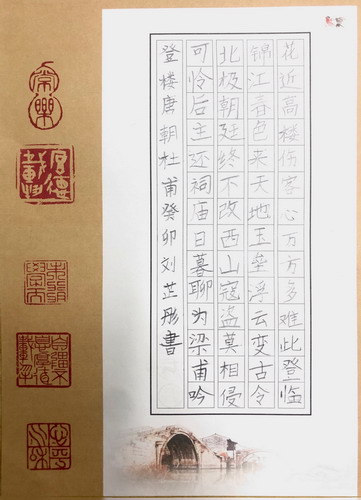 花近高楼伤客心万方多难此登临
锦江春色来天地玉垒浮云变古今
北极朝廷终不改西山寇盗莫相侵
可怜后主还祠庙日暮聊为梁甫吟
登楼唐朝杜甫癸卯刘芷彤書
常樂
厚德載物